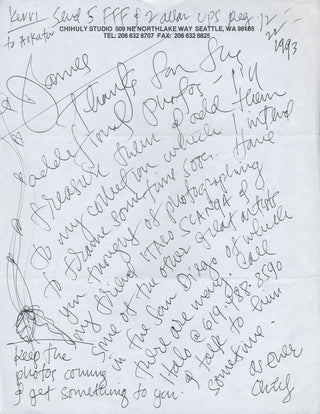 Kerri Send 5 FFF & 2 allan UPS Reg 12-
to Arkatov
22/
1993
CHIHULY STUDIO 509 NE NORTHLAKE WAY SEATTLE, WA 98105
TEL: 206 632 8707 FAX: 206 632 8825
James
Thanks for the
additional photos - I'll
treasure them & add them
to my collection which I intend
to frame sometime soon. Have
you thought of photographing
my friend ITALO SCANGA &
some of the other great artists
in the San Diego of which
there are many. Call
Italo @ 619,488-8590
& talk to him
sometime -
as ever
Chily
keep the
photos coming
& get something to you.